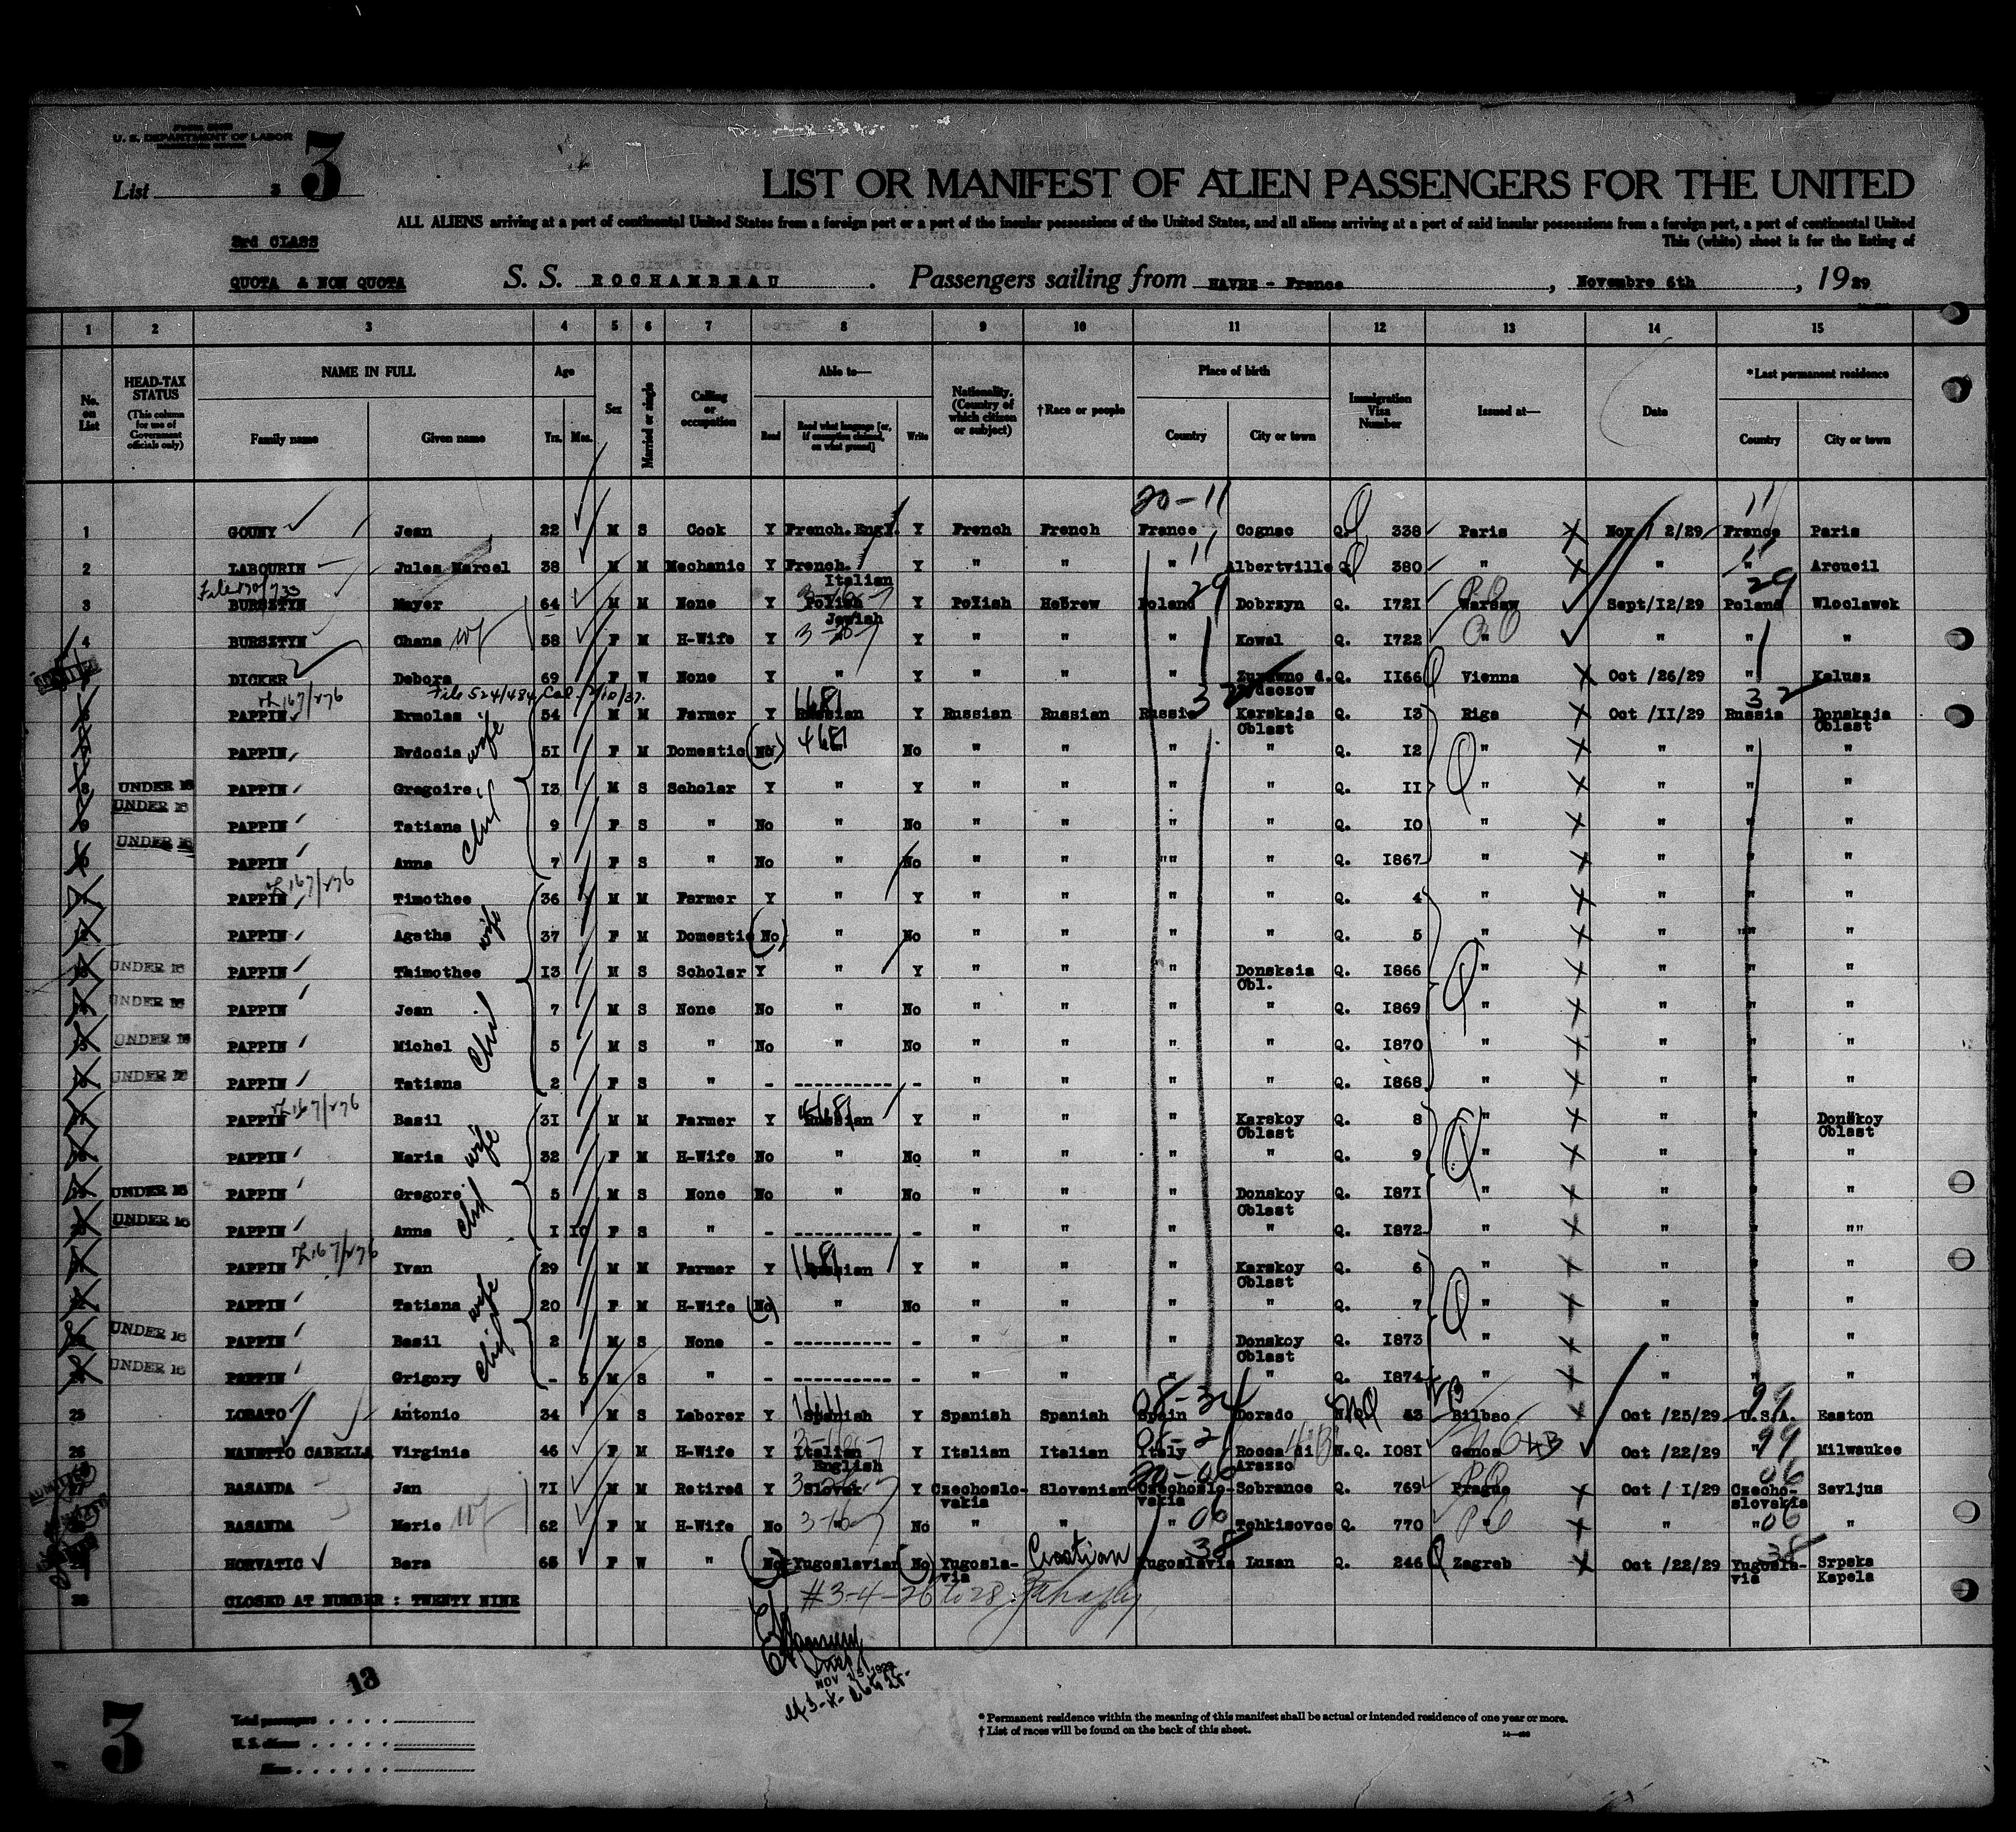 U. S. DEPARTMENT OF LABOR
List 3 3
LIST OR MANIFEST OF ALIEN PASSENGERS FOR THE UNITED
ALL ALIENS arriving at a port of continental United States from a foreign port or a port of the insular possessions of the United States, and all aliens arriving at a port of said insular possessions from a foreign port, a port of continental United
This (white) sheet is for the listing of
3rd CLASS
QUOTA & NON QUOTA S. S. ROCHAMBEAU . Passengers sailing from HAVRE - France , Novembre 6th , 1929
1 2 3 4 5 6 7 8 9 10 11 12 13 14 15
No. on List
HEAD-TAX STATUS (This column for use of Government officials only)
NAME IN FULL Family name Given name
Age Yrs. Mos.
Sex
Married or single
Calling or occupation
Able to— Read Read what language [or, if exemption claimed, on what ground] Write
Nationality. (Country of which citizen or subject)
†Race or people
Place of birth Country City or town
Immigration Visa Number
Issued at—
Date
*Last permanent residence Country City or town
20-11 11
1 GOUNY Jean 22 M S Cook Y French. Engl. Y French French France Cognac Q. 338 Paris Nov / 2/29 France Paris
2 LABOURIN Jules Marcel 38 M M Mechanic Y French. Italian Y " " " Albertville Q. 380 " " " Arcueil
3 BURSZTYN Mayer 64 M M None Y Polish Jewish Y Polish Hebrew Poland Dobrzyn Q. 1721 Warsaw Sept/12/29 Poland Wloclawek
4 BURSZTYN Chana wf 58 F M H-Wife Y Y " " " Kowal Q. 1722 " " " "
DICKER Debora 69 F W None Y " Y " " " Zurawno d. Zydaczow Q. 1166 Vienna Oct /26/29 " Kalusz
File 524/484 Cal.
6 PAPPIN Ermolas 54 M M Farmer Y Russian Y Russian Russian Russia Karskaja Oblast Q. 13 Riga Oct /11/29 Russia Donskaja Oblast
7 PAPPIN Evdocia wife 51 F M Domestic No " No " " " " Q. 12 " " " "
8 UNDER 16 PAPPIN Gregoire 13 M S Scholar Y " Y " " " " Q. 11 " " " "
9 UNDER 16 PAPPIN Tatiana 9 F S " No " No " " " " Q. 10 " " " "
10 UNDER 16 PAPPIN Anna 7 F S " No " No " " "" " Q. 1867 " " " "
11 PAPPIN Timothee 36 M M Farmer Y " Y " " " " Q. 4 " " " "
12 PAPPIN Agatha wife 37 F M Domestic No " No " " " " Q. 5 " " " "
13 UNDER 16 PAPPIN Thimothee 13 M S Scholar Y " Y " " " Donskaia Obl. Q. 1866 " " " "
14 UNDER 16 PAPPIN Jean 7 M S None No " No " " " " Q. 1869 " " " "
15 UNDER 16 PAPPIN Michel 5 M S " No " No " " " " Q. 1870 " " " "
16 UNDER 16 PAPPIN Tatiana 2 F S " - ---------- - " " " " Q. 1868 " " " "
17 PAPPIN Basil 31 M M Farmer Y Russian Y " " " Karskoy Oblast Q. 8 " " " Donskoy Oblast
18 PAPPIN Maria wife 32 F M H-Wife No " No " " " " Q. 9 " " " "
19 UNDER 16 PAPPIN Gregore 5 M S None No " No " " " Donskoy Oblast Q. 1871 " " " "
20 UNDER 16 PAPPIN Anna 1 10 F S " - ---------- - " " " " Q. 1872 " " " ""
21 PAPPIN Ivan 29 M M Farmer Y Russian Y " " " Karskoy Oblast Q. 6 " " " "
22 PAPPIN Tatiana wife 20 F M H-Wife No " No " " " " Q. 7 " " " "
23 UNDER 16 PAPPIN Basil 2 M S None - ---------- - " " " Donskoy Oblast Q. 1873 " " " "
24 UNDER 16 PAPPIN Grigory - 5 M S " - ---------- - " " " " Q. 1874 " " " "
25 LOBATO Antonio 34 M S Laborer Y Spanish Y Spanish Spanish Spain Dorado 53 Bilbao Oct /25/29 U.S.A. Easton
26 MANETTO CABELLA Virginia 46 F M H-Wife Y Italian English Y Italian Italian Italy Rocca di Arazzo N.Q. 1081 Genoa Oct /22/29 " Milwaukee
BASANDA Jan 71 M M Retired Y Slovak Y Czechoslovakia Slovenian Czechoslovakia Sobrance Q. 769 Prague Oct / 1/29 Czechoslovakia Sevljus
BASANDA Marie wf 62 F M H-Wife No " No " " " Tchkisovce Q. 770 " " " "
HORVATIC Bara 65 F W " No Yugoslavian No Yugoslavia Croatian Yugoslavia Luzan Q. 246 Zagreb Oct /22/29 Yugoslavia Srpska Kapela
30 CLOSED AT NUMBER : TWENTY NINE
#3-4-26 to 28
NOV 15 1929
13
3
Total passengers
U. S. citizens
Aliens
* Permanent residence within the meaning of this manifest shall be actual or intended residence of one year or more.
† List of races will be found on the back of this sheet.